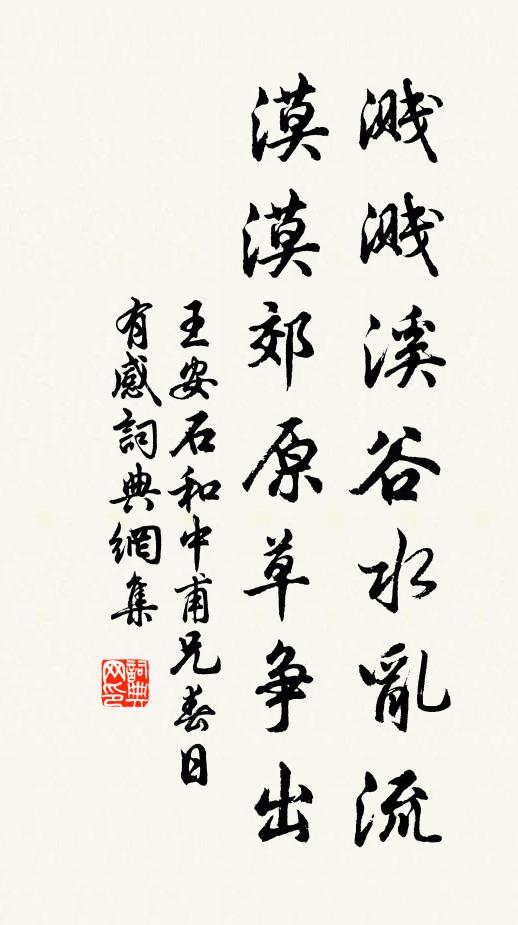 濺濺溪谷水亂流
漠漠郊原草争出
王安石和中甫兄春日
有感詞典網集
詞典网印